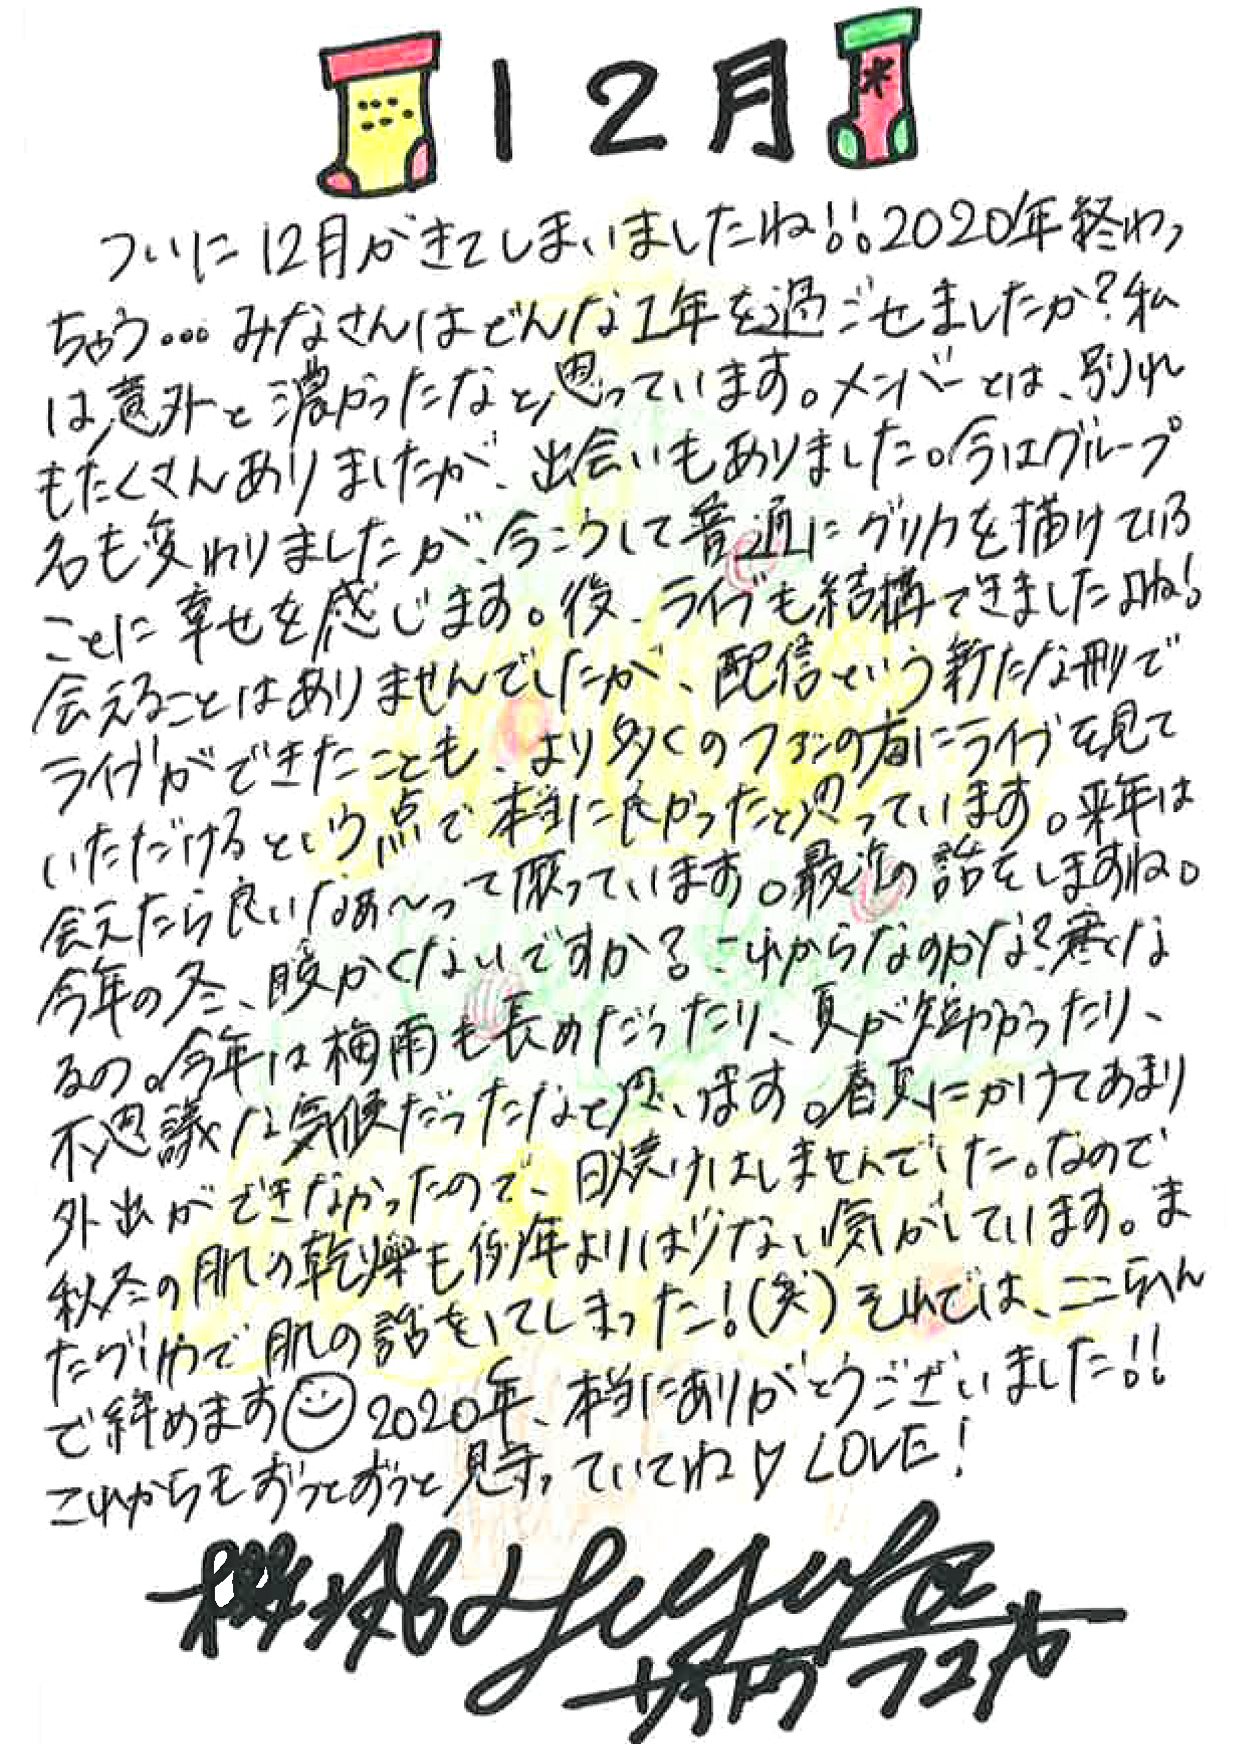 12月
ついに12月がきてしまいましたね!!2020年終わっ
ちゃう...みなさんはどんな1年を過ごせましたか?私
は意外と濃かったなと思っています。メンバーとは、別れ
もたくさんありましたが、出会いもありました。今はグループ
名も変わりましたが、今こうして普通にグリカを描けている
ことに幸せを感じます。後、ライブも結構できましたよね!
会えることはありませんでしたが、配信という新たな形で
ライブができたことも、より多くのファンの方にライブを見て
いただけるという点で本当に良かったと思っています。来年は
会えたら良いなぁ〜って願っています。最近の話をしますね。
今年の冬、暖かくないですか?これからなのかな?寒くな
るの。今年は梅雨も長めだったり、夏が短かかったり、
不思議な気候だったなと思います。春夏にかけてあまり
外出ができなかったので、日焼けはしませんでした。なので
秋冬の肌の乾燥も例年よりは少ない気がしています。ま
たグリカで肌の話をしてしまった!(笑)それでは、ここらへん
で締めます 2020年、本当にありがとうございました!!
これからもずっとずっと見守っていてね♡LOVE!
櫻坂46